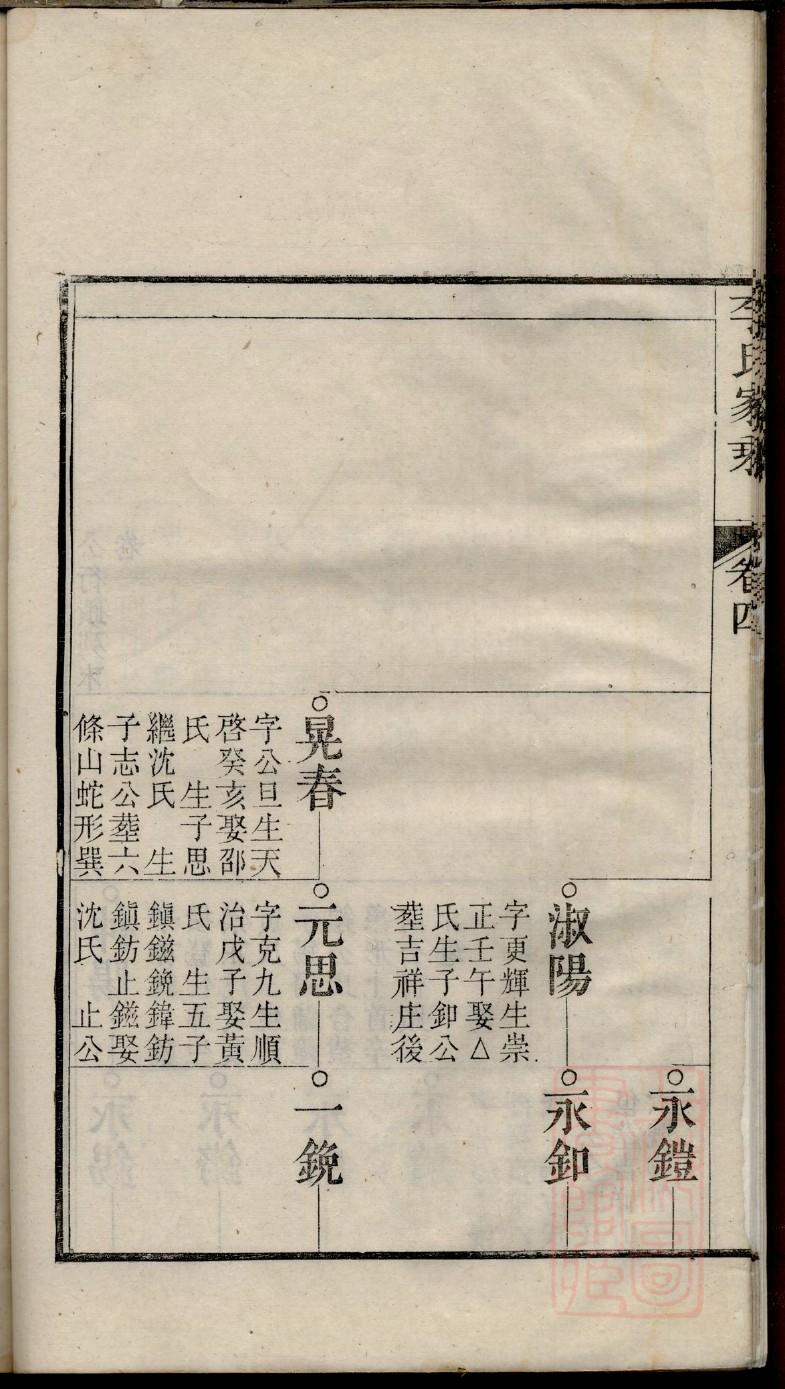 李氏家乘
卷四
永鎧
淑陽
字更輝生崇
正壬午娶△
氏生子鉚公
塟吉祥庄後
永鉚
晃春
字公旦生天
啓癸亥娶邵
氏 生子思
繼沈氏 生
子志公塟六
條山蛇形巽
元思
字克九生順
治戊子娶黃
氏 生五子
鎭鎡鋔鍏鈁
鎭鈁止鎡娶
沈氏 止公
一鋔